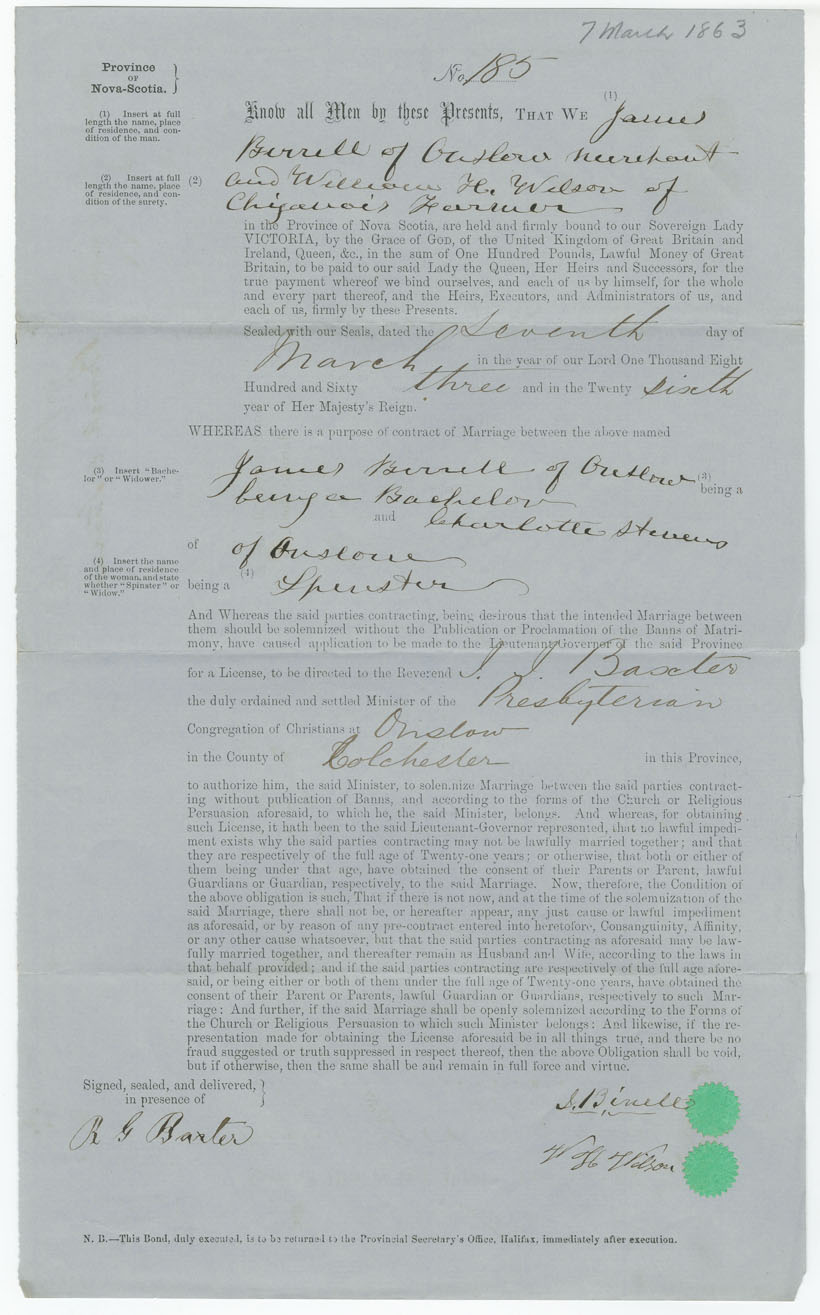 7 March 1863
Province
OF
Nova-Scotia.
No. 185
(1) Insert at full
length the name, place
of residence, and con-
dition of the man.
Know all Men by these Presents, THAT WE (1) James
Birrell of Onslow merchant
(2) Insert at full
length the name, place
of residence, and con-
dition of the surety.
(2) and William H. Wilson of
Chiganois Farmer
in the Province of Nova Scotia, are held and firmly bound to our Sovereign Lady
VICTORIA, by the Grace of GOD, of the United Kingdom of Great Britain and
Ireland, Queen, &c., in the sum of One Hundred Pounds, Lawful Money of Great
Britain, to be paid to our said Lady the Queen, Her Heirs and Successors, for the
true payment whereof we bind ourselves, and each of us by himself, for the whole
and every part thereof, and the Heirs, Executors, and Administrators of us, and
each of us, firmly by these Presents.
Sealed with our Seals, dated the Seventh day of
March in the year of our Lord One Thousand Eight
Hundred and Sixty three and in the Twenty Sixth
year of Her Majesty's Reign.
WHEREAS there is a purpose of contract of Marriage between the above named
(3) Insert "Bache-
lor" or "Widower."
James Birrell of Onslow (3) being a
being a Bachelor
and Charlotte Stevens
of of Onslow
(4) Insert the name
and place of residence
of the woman, and state
whether "Spinster" or
"Widow."
being a (4) Spinster
And Whereas the said parties contracting, being desirous that the intended Marriage between
them should be solemnized without the Publication or Proclamation of the Banns of Matri-
mony, have caused application to be made to the Lieutenant Governor of the said Province
for a License, to be directed to the Reverend J. J. Baxter
the duly ordained and settled Minister of the Presbyterian
Congregation of Christians at Onslow
in the County of Colchester in this Province,
to authorize him, the said Minister, to solemnize Marriage between the said parties contract-
ing without publication of Banns, and according to the forms of the Church or Religious
Persuasion aforesaid, to which he, the said Minister, belongs. And whereas, for obtaining
such License, it hath been to the said Lieutenant-Governor represented, that no lawful impedi-
ment exists why the said parties contracting may not be lawfully married together; and that
they are respectively of the full age of Twenty-one years; or otherwise, that both or either of
them being under that age, have obtained the consent of their Parents or Parent, lawful
Guardians or Guardian, respectively, to the said Marriage. Now, therefore, the Condition of
the above obligation is such, That if there is not now, and at the time of the solemnization of the
said Marriage, there shall not be, or hereafter appear, any just cause or lawful impediment
as aforesaid, or by reason of any pre-contract entered into heretofore, Consanguinity, Affinity,
or any other cause whatsoever, but that the said parties contracting as aforesaid may be law-
fully married together, and thereafter remain as Husband and Wife, according to the laws in
that behalf provided; and if the said parties contracting are respectively of the full age afore-
said, or being either or both of them under the full age of Twenty-one years, have obtained the
consent of their Parent or Parents, lawful Guardian or Guardians, respectively to such Mar-
riage: And further, if the said Marriage shall be openly solemnized according to the Forms of
the Church or Religious Persuasion to which such Minister belongs: And likewise, if the re-
presentation made for obtaining the License aforesaid be in all things true, and there be no
fraud suggested or truth suppressed in respect thereof, then the above Obligation shall be void,
but if otherwise, then the same shall be and remain in full force and virtue.
Signed, sealed, and delivered,
in presence of
J. Birrell
R G Baxter
W H Wilson
N. B.—This Bond, duly executed, is to be returned to the Provincial Secretary's Office, Halifax, immediately after execution.